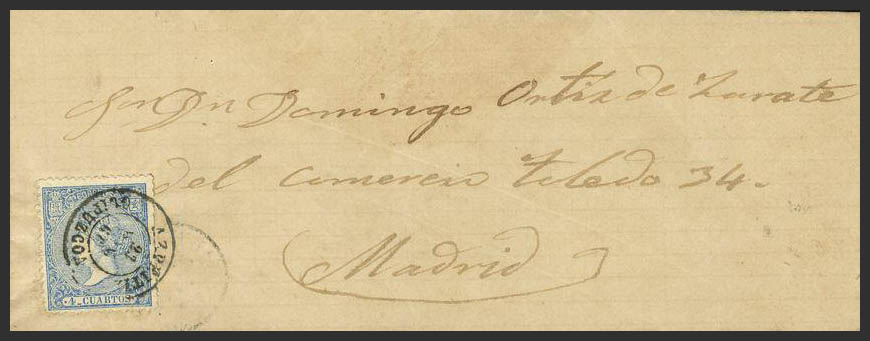 Sor Dn Domingo Ortiz de Zarate
del comercio Toledo 34.
Madrid
4 CUARTOS
AZPEITIA
GUIPUZCOA.